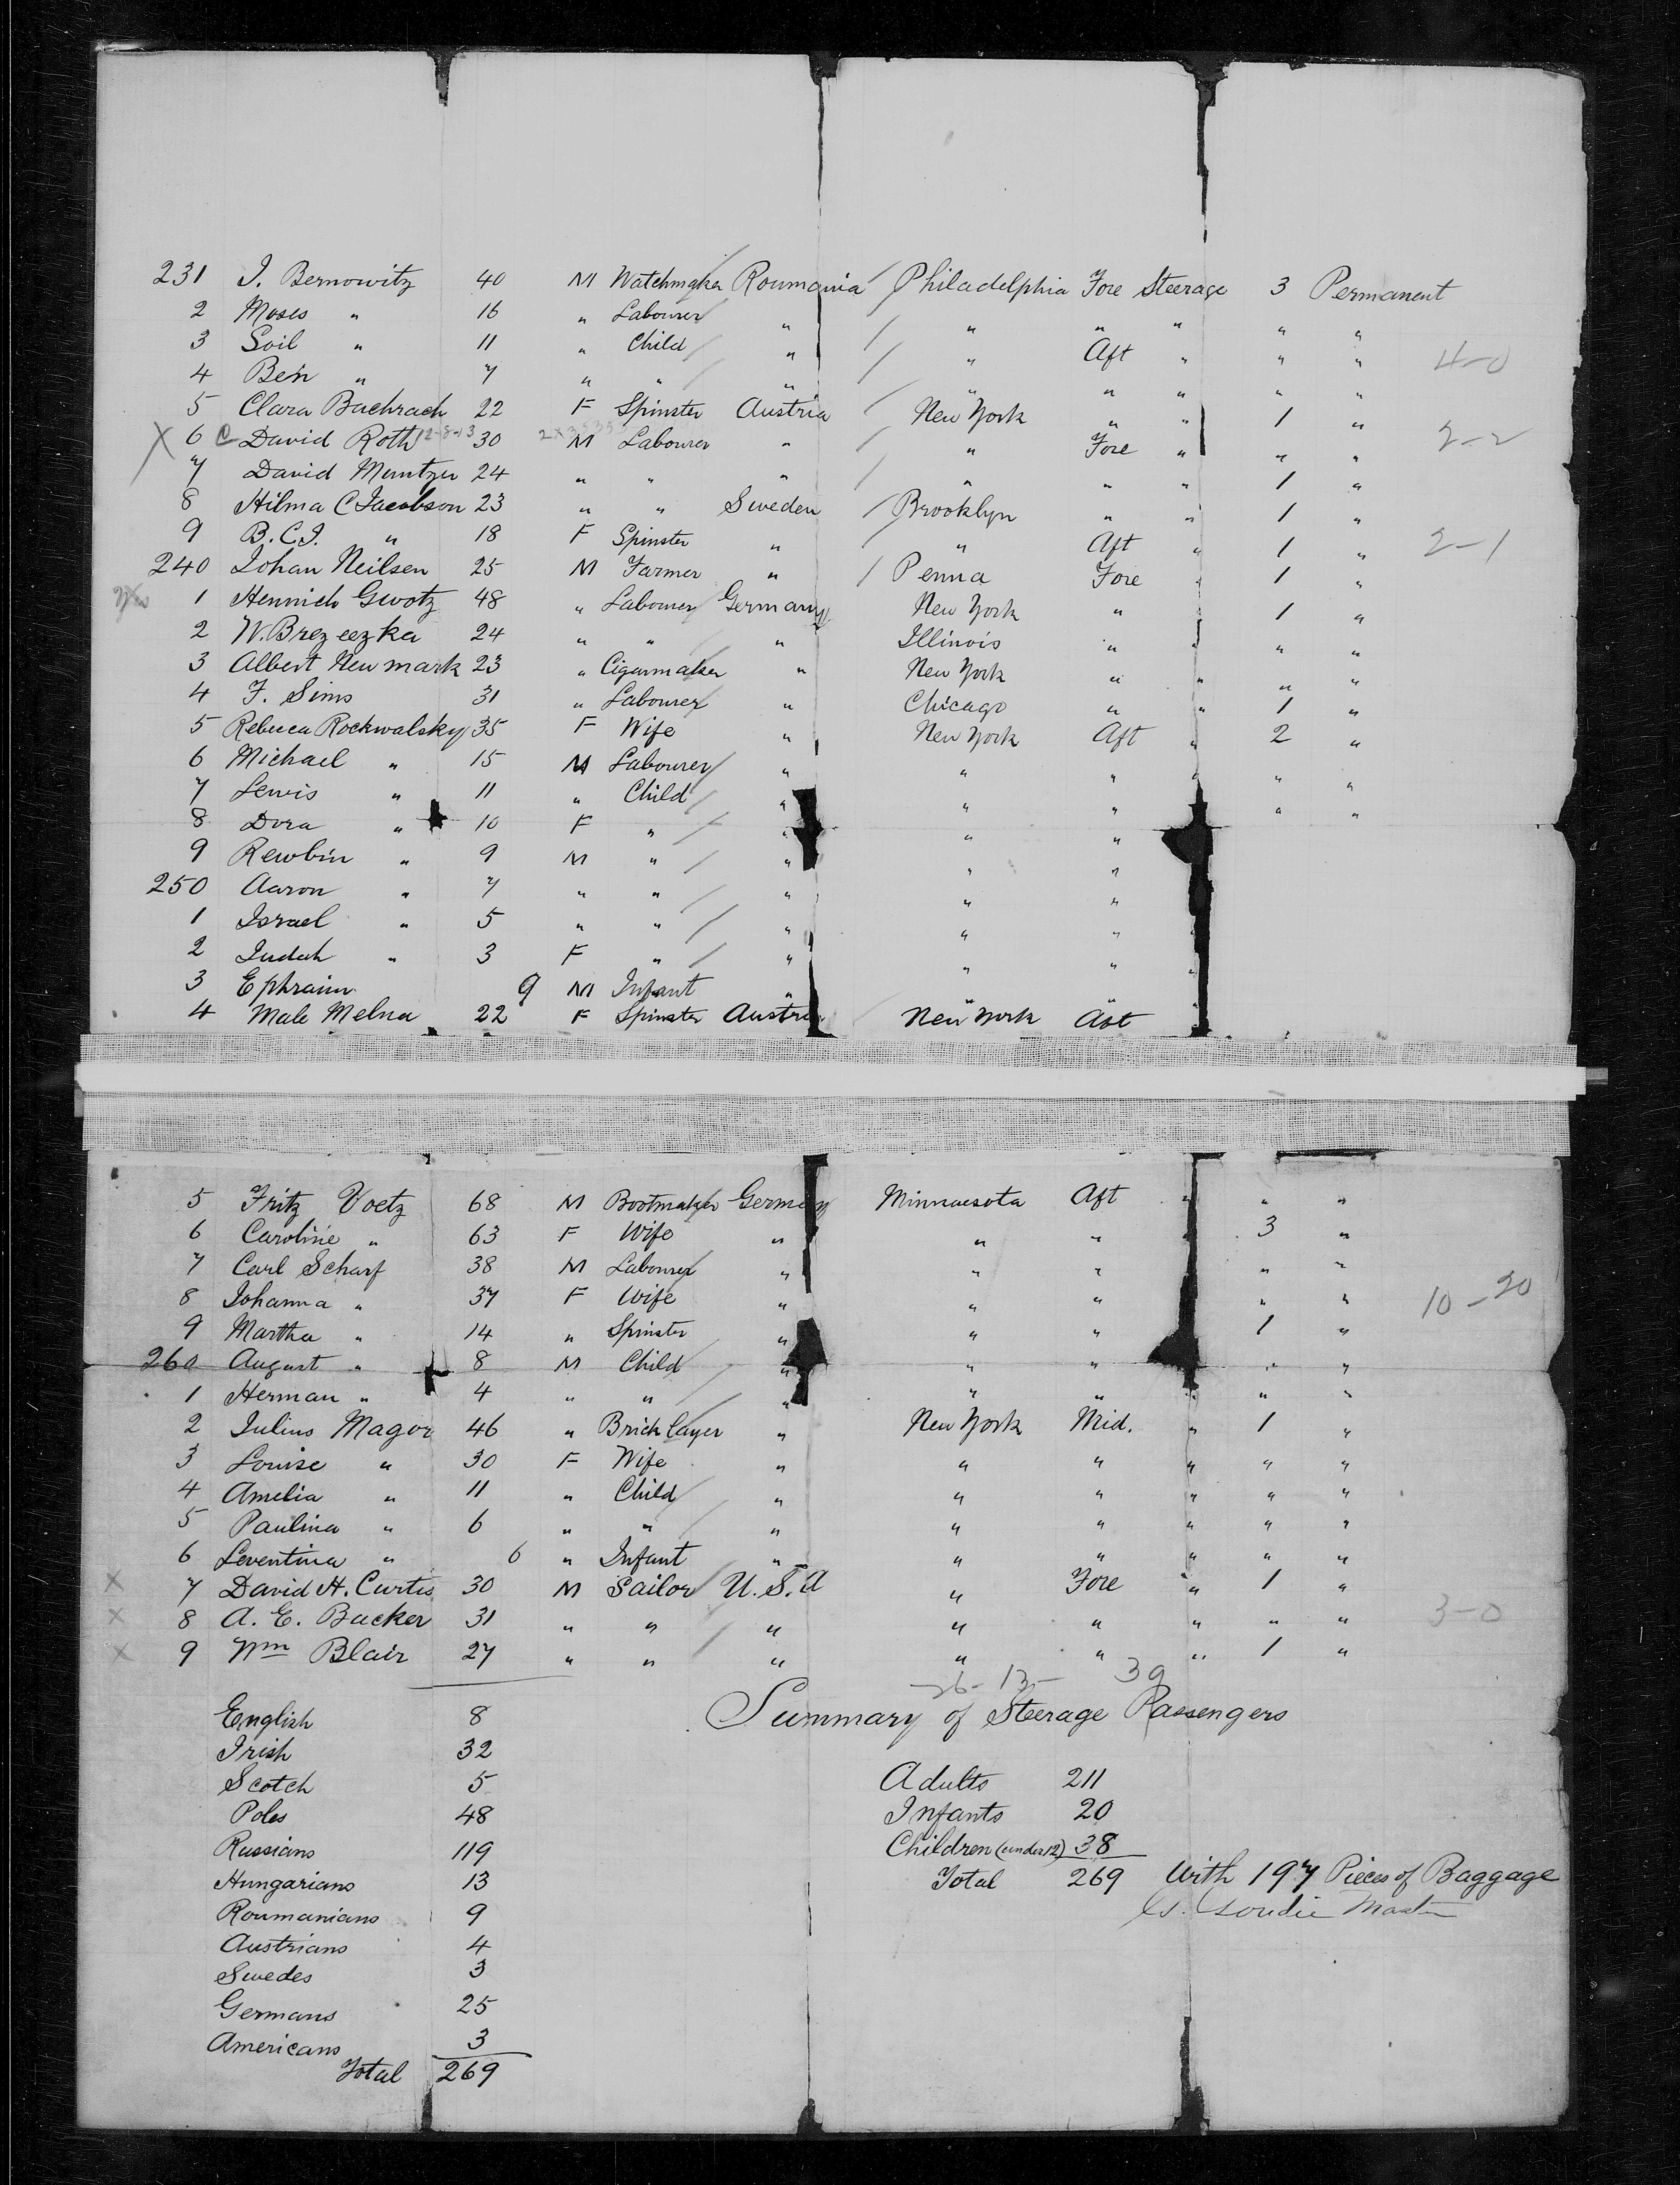 231 I. Bernowitz 40 M Watchmaker Roumania / Philadelphia Fore Steerage 3 Permanent
2 Moses " 16 " Labourer " / " " " " "
3 Soil " 11 " Child " / " Aft " " " 4-0
4 Ben " 7 " " " " " " " "
5 Clara Bachrach 22 F Spinster Austria / New York " " 1 "
X 6 C David Roth 12-8-13 30 M Labourer " / " Fore " " " 2-2
7 David Memtzer 24 " " " / " " " 1 "
8 Hilma C Jacobson 23 " " Sweden / Brooklyn " " 1 "
9 B.C.J. " 18 F Spinster " " Aft " 1 " 2-1
240 Johan Neilsen 25 M Farmer " / Penna Fore " 1 "
1 Hennich Gwotz 48 " Labourer Germany New York " " 1 "
2 W. Brezeezka 24 " " " Illinois " " " "
3 Albert Newmark 23 " Cigarmaker " New York " " " "
4 F. Sims 31 " Labourer " Chicago " " 1 "
5 Rebecca Rockwalsky 35 F Wife " New York Aft " 2 "
6 Michael " 15 M Labourer " " " " " "
7 Lewis " 11 " Child " " " " "
8 Dora " 10 F " " " "
9 Rewbin " 9 M " " " "
250 Aaron " 7 " " " " "
1 Israel " 5 " " " " "
2 Judah " 3 F " " " " "
3 Ephraim 9 M Infant " " "
4 Male Melna 22 F Spinster Austria New York Aft
5 Fritz Voetz 68 M Bootmaker Germany Minnaesota Aft " " "
6 Caroline " 63 F Wife " " " 3 "
7 Carl Scharf 38 M Labourer " " " " "
8 Johanna " 37 F Wife " " " " " 10-20
9 Martha " 14 " Spinster " " " 1 "
260 August " 8 M Child " " " " "
1 Herman " 4 " " " " " " " "
2 Julius Magor 46 " Bricklayer " New York Mid. " 1 "
3 Louise " 30 F Wife " " " " " "
4 Amelia " 11 " Child " " " " " "
5 Paulina " 6 " " " " " " " "
6 Leventina " 6 " Infant " " " " " "
X 7 David H. Curtis 30 M Sailor U.S.A " Fore " 1 "
X 8 A. E. Backer 31 " " " " " " " " 3-0
X 9 Wm Blair 27 " " " " " " 1 "
26-13- 39
Summary of Steerage Passengers
English 8
Irish 32
Scotch 5
Poles 48
Russians 119
Hungarians 13
Roumanians 9
Austrians 4
Swedes 3
Germans 25
Americans 3
Total 269
Adults 211
Infants 20
Children (under 12) 38
Total 269 With 197 Pieces of Baggage
Master